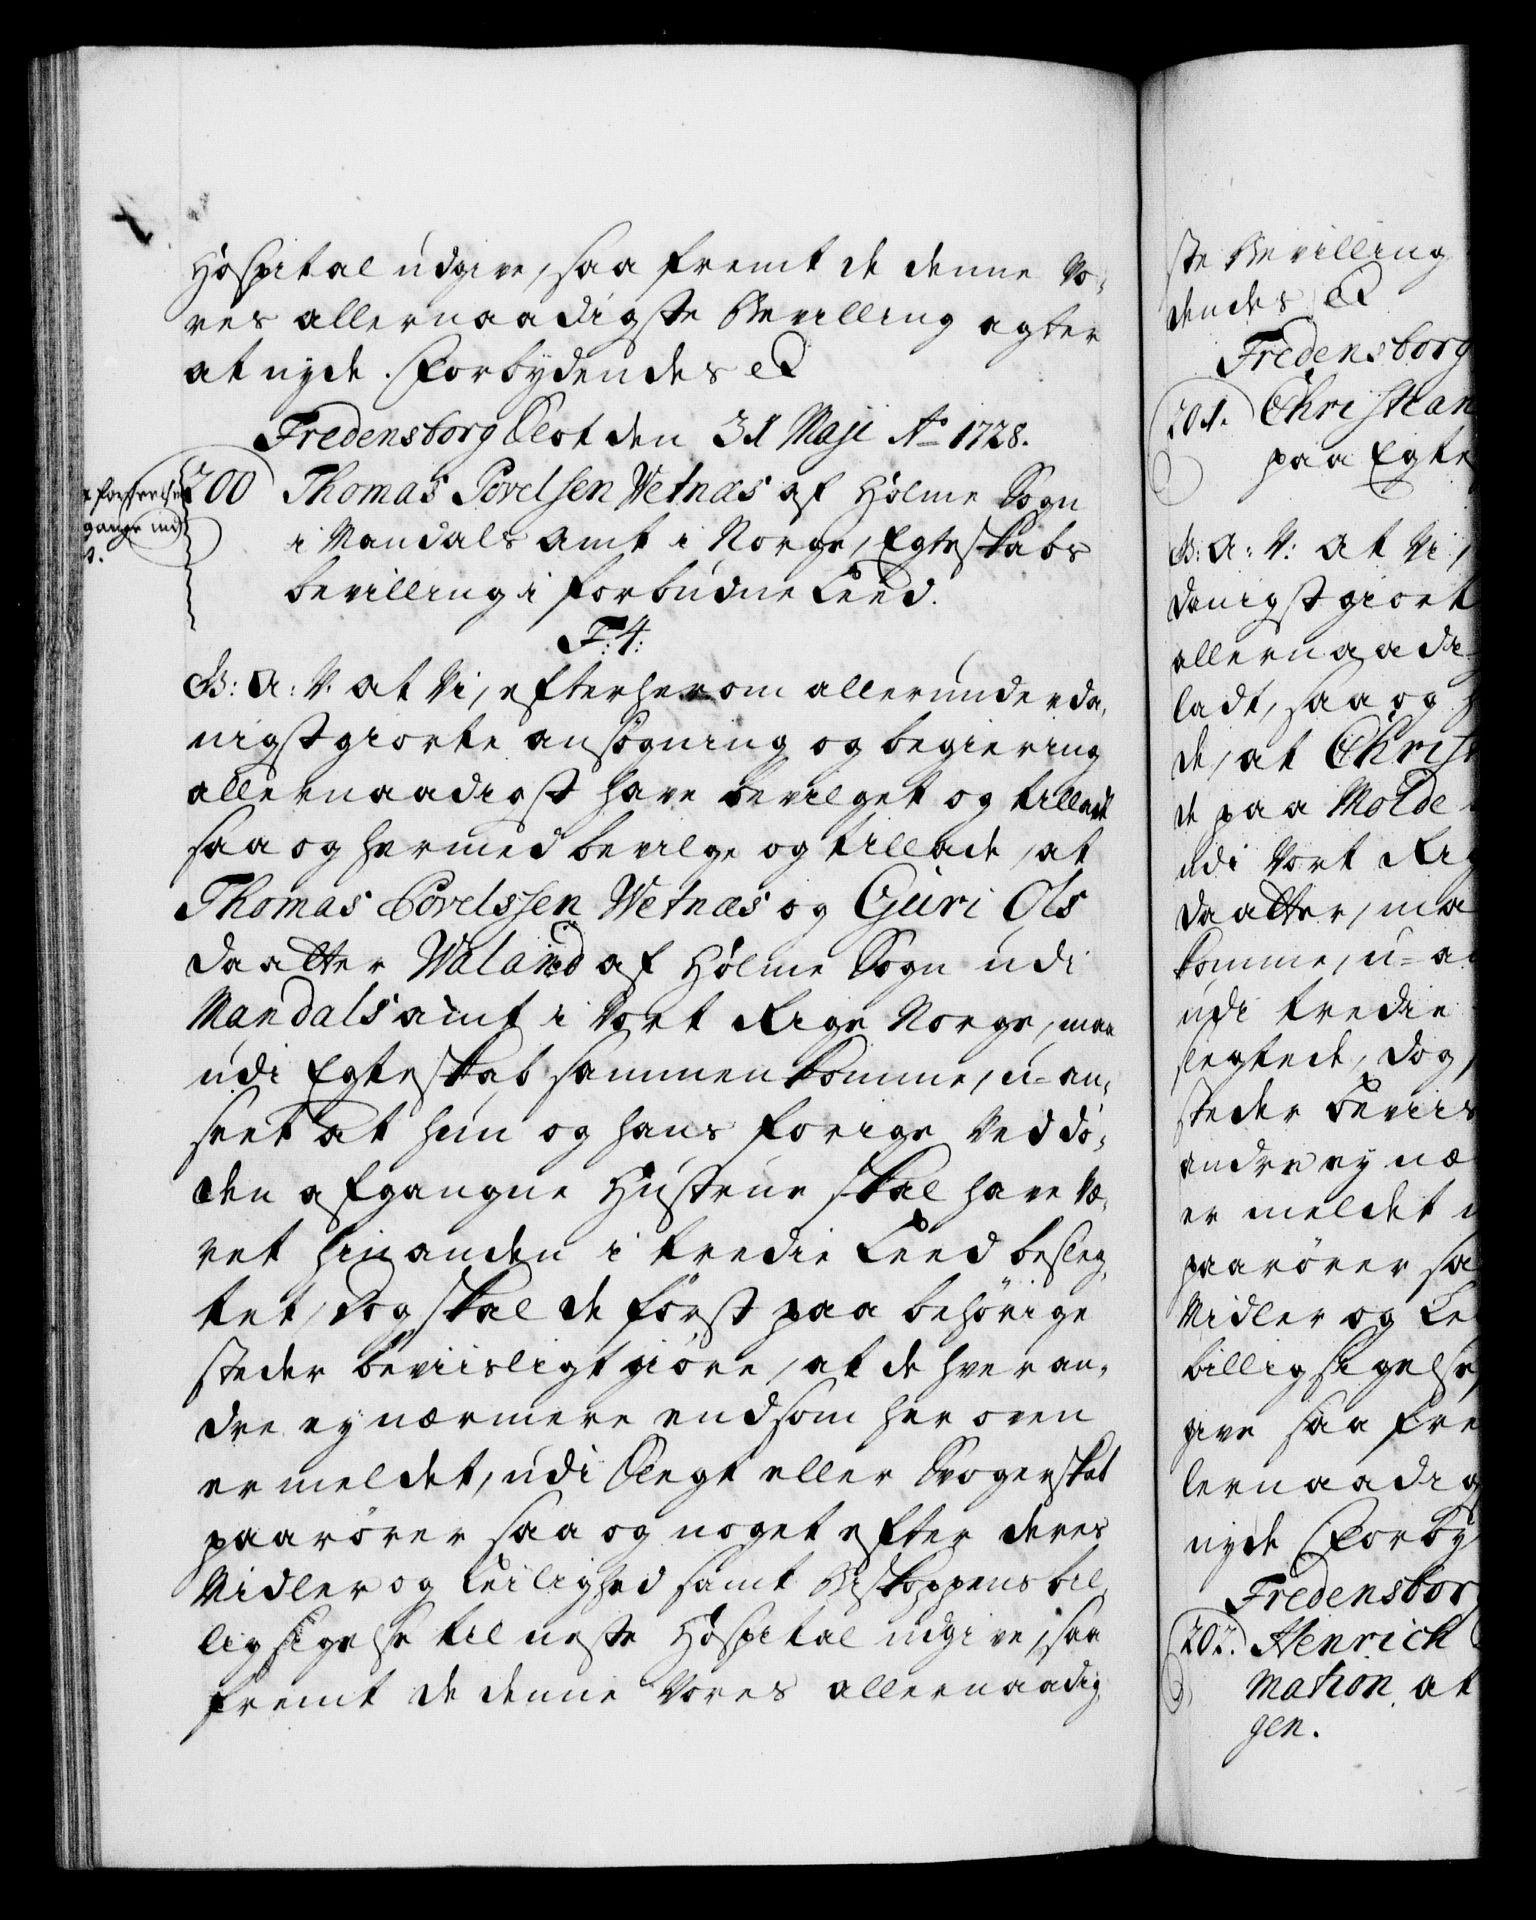 Hospital udgive, saa fremt de denne Vo,
res allernaadigste Bevilling agter
at nyde. Forbydendes &
Fredensborg Slot den 31 Maji Ao 1728.
200 Thomas Povelsen Vetnæs af Holme Sogn
i Mandals Amt i Norge, Egteskabs
bevilling i forbudne Leed.
F: 4:
G: A: V: at Vi, efter herom allerunderda,
nigst giorte ansøgning og begiering
allernaadigst have bevilget og tilladt
saa og hermed bevilge og tillade, at
Thomas Povelssen Wetnæs og Guri Ols
daatter Waland af Hølme Sogn udi
Mandals amt i Vort Rige Norge, maa
udi Egteskab sammenkomme, u-an,
seet at hun og hans forige ved dø,
den afgangne Hustrue skal have væ,
ret hinanden i tredie Leed besleg,
tet, Dog skal de først paa behørige
steder beviisligt giøre, at de hveran,
dre ey nærmere end som her oven
er meldet, udi Slegt eller Svogerskab
paarører saa og noget efter deres
Midler og Leilighed samt Biskoppens bil,
ligsigelse til neste Hospital udgive, saa
fremt de denne Vores allernaadig,
ste Bevilling
dendes &
Fredensborg
201. Christian
paa Egte
G: A: V: at Vi,
danigst giort
allernaadi
ladt, saa og h
de, at Christ
de paa Molde
udi Vort Rig
daatter, ma
komme, u-a
udi tredie
slegtede, dog,
steder beviis
andre ey næ
er meldet
paarører sa
Midler og Le
billigsigelse
give saa fre
lernaadig
nyde Forby
Fredensbor
202. Henrich
mation at
gen.